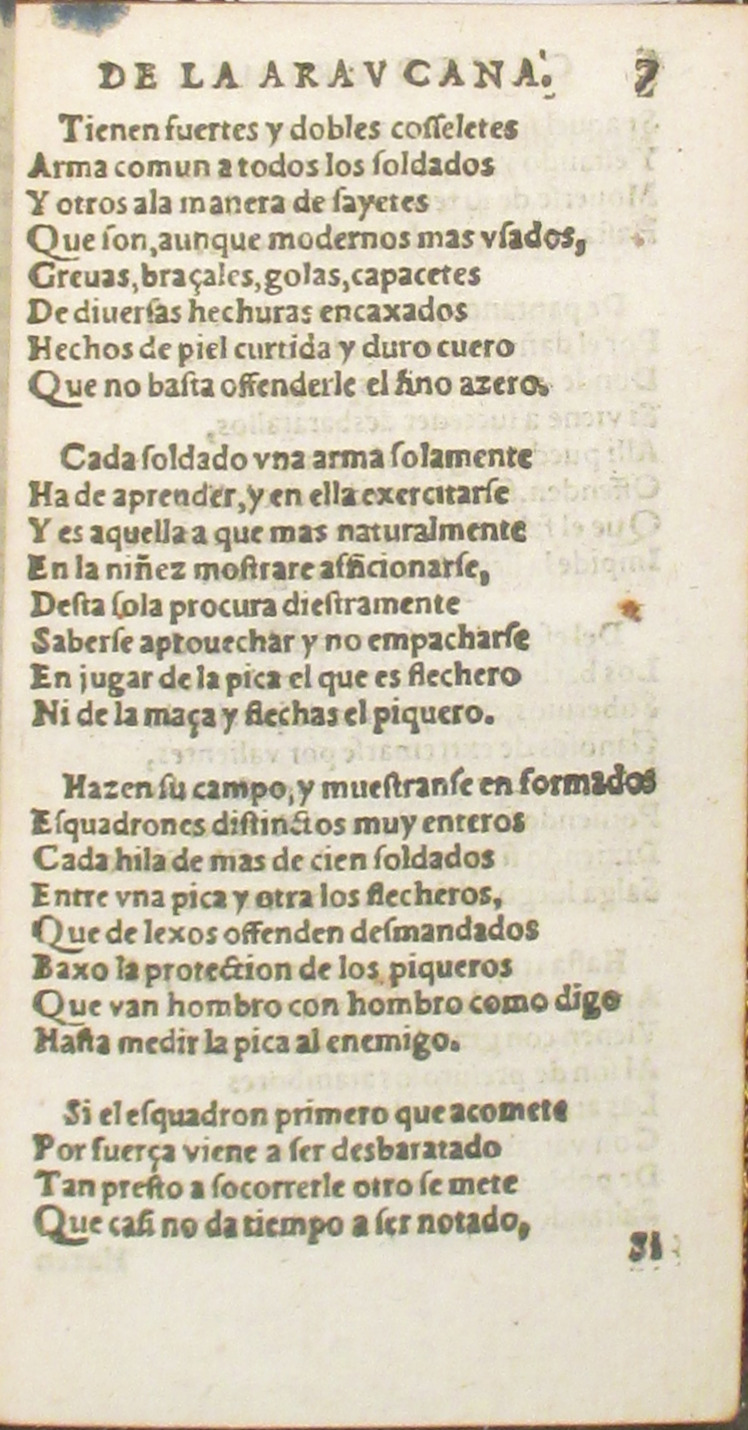 DE LA ARAVCANA. 7
Tienen fuertes y dobles coſſeletes
Arma comun a todos los ſoldados
Y otros ala manera de ſayetes
Que ſon, aunque modernos mas vſados,
Greuas, braçales, golas, capacetes
De diuerſas hechuras encaxados
Hechos de piel curtida y duro cuero
Que no baſta offenderle el fino azero.
Cada ſoldado vna arma ſolamente
Ha de aprender, y en ella exercitarſe
Y es aquella a que mas naturalmente
En la niñez moſtrare afficionarſe,
Deſta ſola procura dieſtramente
Saberſe aprouechar y no empacharſe
En jugar de la pica el que es flechero
Ni de la maça y flechas el piquero.
Hazen ſu campo, y mueſtranſe en formados
Eſquadrones diſtinctos muy enteros
Cada hila de mas de cien ſoldados
Entre vna pica y otra los flecheros,
Que de lexos offenden deſmandados
Baxo la protection de los piqueros
Que van hombro con hombro como digo
Haſta medir la pica al enemigo.
Si el eſquadron primero que acomete
Por fuerça viene a ſer desbaratado
Tan preſto a ſocorrerle otro ſe mete
Que caſi no da tiempo a ſer notado,
Si